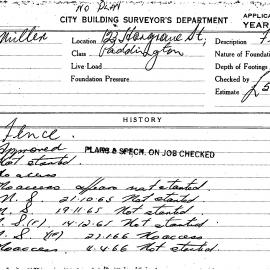 NO PLAN
CITY BUILDING SURVEYOR'S DEPARTMENT
APPLICA
YEAR
Miller
Location 22 Hargrave St,
Description
Class Paddington
Nature of Foundation
Live Load
Depth of Footings
Foundation Pressure
Checked by
Estimate £5
HISTORY
Fence.
Approved
PLANS & SPECN. ON JOB CHECKED
Not started
No access
No access appears not started.
N.S. 21.10.65 Not started
19.11.65 Not started
S. 14.12.65 Not started
S. 21.1.66 No access
No access 4.4.66 Not started